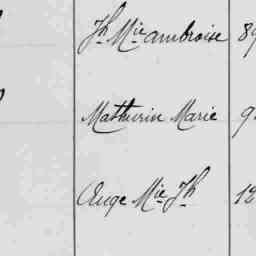 Jh Mie ambroise 89
Mathurin Marie 9
Ange Mie Jh 18